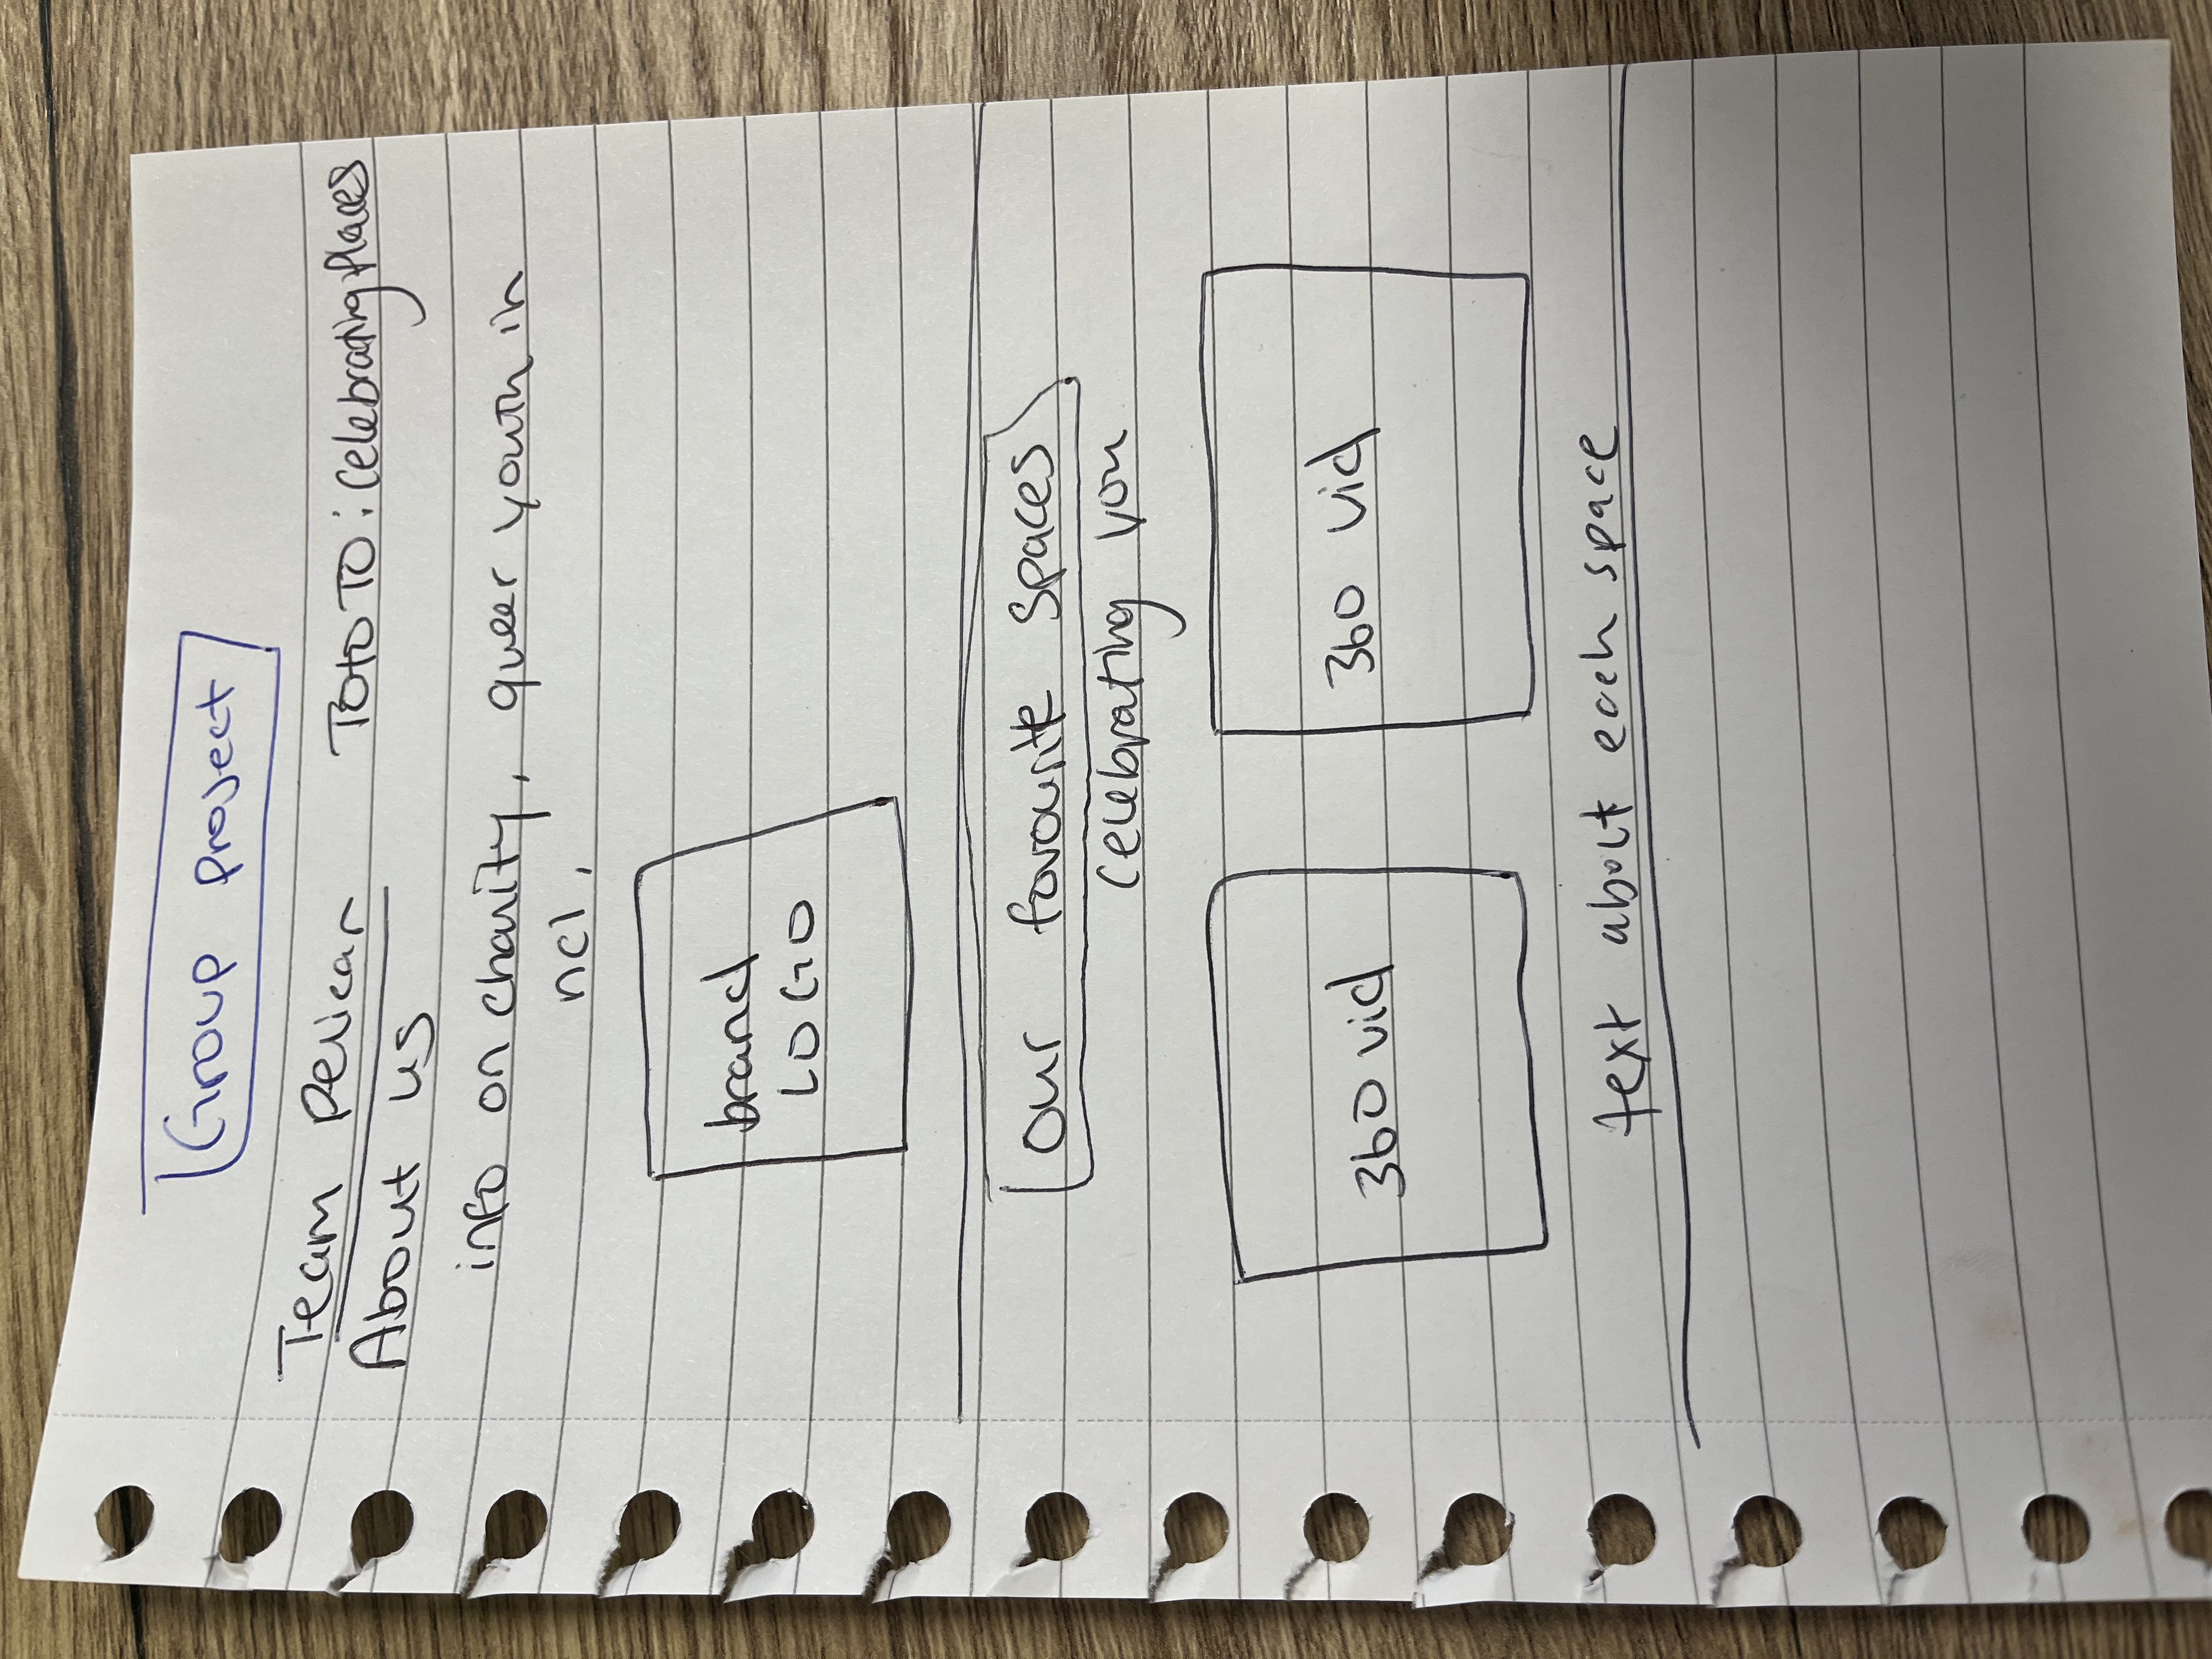 Group project
Team Pelican
TotoTO: Celebrating Places
About us
info on charity, queer youth in
ncl,
brand
LOGO
our favourite spaces
celebrating you
360 vid
360 vid
text about each space